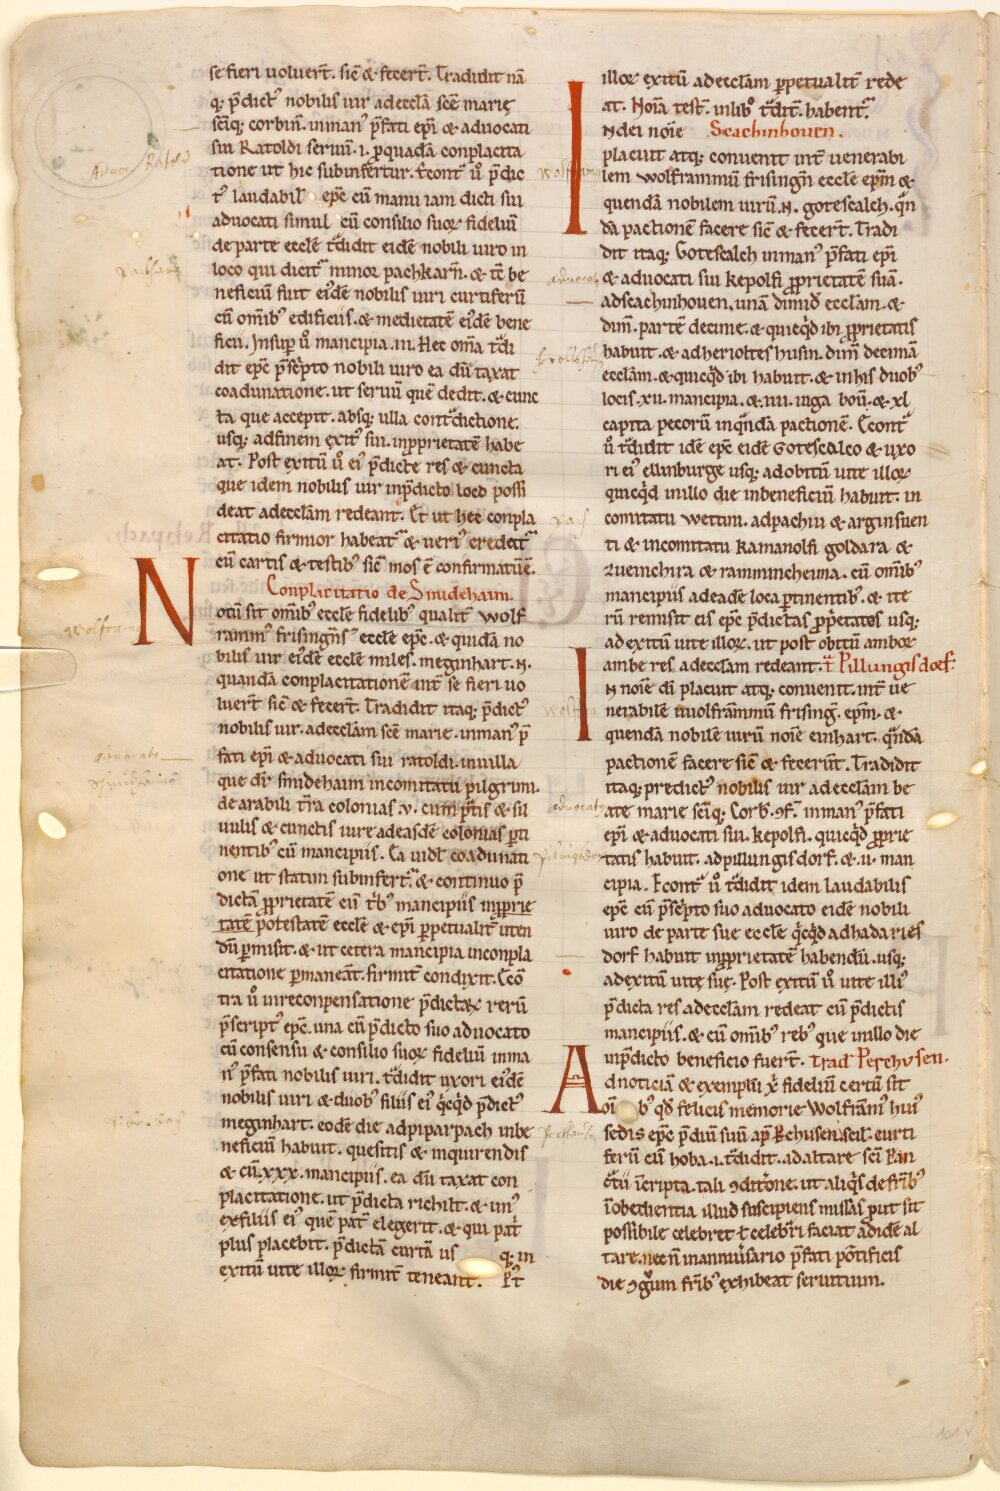 se fieri uoluert̄. sic̄ & fecert̄. Tradidit nā
q; p̄dict' nobilis uir ad eccl̄ā sc̄ē marię
sc̄iq; corbin̄. in man' p̄fati ep̄i & aduocati
sui Ratoldi seruū .i. p quadā conplacita
tione ut hic subinfertur. Econt̄ ū p̄dic
t' laudabil' ep̄c cū manu iam dicti sui
aduocati simul cū consilio suoꝝ fideliū
de parte eccl̄ē t'didit eidē nobili uiro in
loco qui dicit' minor pachkarn̄. & t̄t̄ be
neficiū fuit ei'dē nobilis uiri curtiferū
cū om̄ib' edificiis. & medietatē ei'dē bene
ficii. Insup ū mancipia .iii. Hec om̄a t'di
dit ep̄c p̄sc'pto nobili uiro ea dū taxat
coadunatione. ut seruū quē dedit. & cunc
ta que accepit. absq; ulla cont'dictione.
usq; ad finem exit' sui. in pprietatē habe
at. Post exitū ū ei' p̄dicte res & cuncta
que idem nobilis uir in p̄dicto loco possi
deat ad eccl̄am redeant. Et ut hec conpla
citatio firmior habeat' & ueri' credat'
cū cartis & testib' sic̄ mos ē confirmatū ē.
Conplacitatio de Smidehaim.
Notū sit om̄ib' eccl̄ē fidelib' qualit̄ wolf
ramm' frisingn̄s eccl̄ē ep̄c. & quidā no
bilis uir ei'dē eccl̄ē miles. meginhart .N.
quandā conplacitationē int̄ se fieri uo
luert̄ sic̄ & fecert̄. Tradidit itaq; p̄dict'
nobilis uir. ad eccl̄am sc̄ē marie. in man' p̄
fati ep̄i & aduocati sui ratoldi. in uilla
que dr̄ smidehaim in comitatu piligrimi.
de arabili t̄ra colonias .v. cum p̄tis & sil
uulis & cunctis iure ad easdē colonias pti
nentib' cū mancipiis. Ea uidl̄ coadunati
one ut statim subinfert'. & continuo p̄
dictā pprietatē cū t'b' mancipiis in pprie
tatē potestatē eccl̄ē & ep̄i ppetualit̄ uten
dū pmisit. & ut cetera mancipia in conpla
citatione pmaneāt. firmit̄ condixit. Ecō
tra ū in reconpensatione p̄dictaꝝ rerū
p̄script' ep̄c. una cū p̄dicto suo aduocato
cū consensu & consilio suoꝝ fideliū in ma
n' p̄fati nobilis uiri. t'didit uxori ei'dē
nobilis uiri & duob' filiis ei' q'cq'd p̄dict'
meginhart. eodē die ad piparpach in be
neficiū habuit. quesitis & inquirendis
& cū .xxx. mancipiis. ea dū taxat con
placitatione. ut p̄dicta richilt. & un'
ex filiis ei' quē pat̄ elegerit. & qui pat'
plus placebit. p̄dictā curtā us q; in
exitū uite illoꝝ firmit̄ teneant. P't
illoꝝ exitū ad eccl̄am ppetualit̄ rede
at. Nōia test̄. in lib' t'dit̄. habent'.
Scachinhouen.
In dei nōie
placuit atq; conuenit int̄ uenerabi
lem wolframmū frisingn̄ eccl̄ē ep̄m &
quendā nobilem uirū .N. gotescalch. q'n
dā pactionē facere sic̄ & fecert̄. Tradi
dit itaq; Gotescalch in man' p̄fati ep̄i
& aduocati sui kepolfi pprietatē suā.
ad scachinhouen. unā dimid̄ eccl̄am. &
dim̄. partē decime. & quicq'd ibi pprietatis
habuit. & ad herioltes husin. dim̄ decimā
eccl̄am. & quicq'd ibi habuit. & in his duob'
locis .xii. mancipia. & .iiii. iuga boū. & .xl.
capita pecorū in q'ndā pactionē. Econt'
ū t'didit idē ep̄c eidē Gotescalco & uxo
ri ei' ellinburge usq; ad obitū uite illoꝝ
quicq'd in illo die in beneficiū habuit. in
comitatu wettun. ad pachiu & arginsuen
ti & in comitatu kamanolfi goldara &
zueinchira & rammincheima. cū om̄ib'
mancipiis ad eadē loca ptinentib'. & ite
rū remisit eis ep̄c p̄dictas ppetates usq;
ad exitū uite illoꝝ. ut post obitū amboꝝ
ambe res ad eccl̄am redeant. t̄ Pillungisdorf.
In nōie dī placuit atq; conuenit. int̄ ue
nerabilē uuolframmū frisinḡ. ep̄m. &
quendā nobilē uirū nōie einhart. q'ndā
pactionē facere sic̄ & fecerūt. Tradidit
itaq; predict' nobilis uir ad eccl̄am be
ate marie sc̄iq; Corb̄. ꝯf̄. in man' p̄fati
ep̄i & aduocati sui. kepolfi. quicq'd pprie
tatis habuit. ad pillungisdorf. & .ii. man
cipia. Econt' ū t'didit idem laudabilis
ep̄c cū p̄sc'pto suo aduocato eidē nobili
uiro de parte sue eccl̄ē q'cq'd ad hadaries
dorf habuit in pprietatē habendū. usq;
ad exitū uitę suę. Post exitū ū uite illi'
p̄dicta res ad eccl̄am redeat cū p̄dictis
mancipiis. & cū om̄ib' reb' que in illo die
in p̄dicto beneficio fuert̄. Trad̄ Perchusen.
Ad noticiā & exemplū x̄p̄ī fideliū certū sit
ōi b' qd̄ felicis memorie Wolfram̄' hui'
sedis ep̄c p̄diū suū ap̄ Perchusen scil̄. curti
ferū cū hoba .i. t'didit. ad altare sc̄i Ian
c̄tū ic̄ripta. tali ꝯditōne. ut aliq's de fr̄ib'
ī obedientia illud suscipiens missas put sit
possibile celebret t̄ celebr̄i faciat ad idē al
tare. nec n̄ in anniu'sario p̄fati pōtificis
die ꝯg'uum fr̄ib' exhibeat seruitium.
101 v